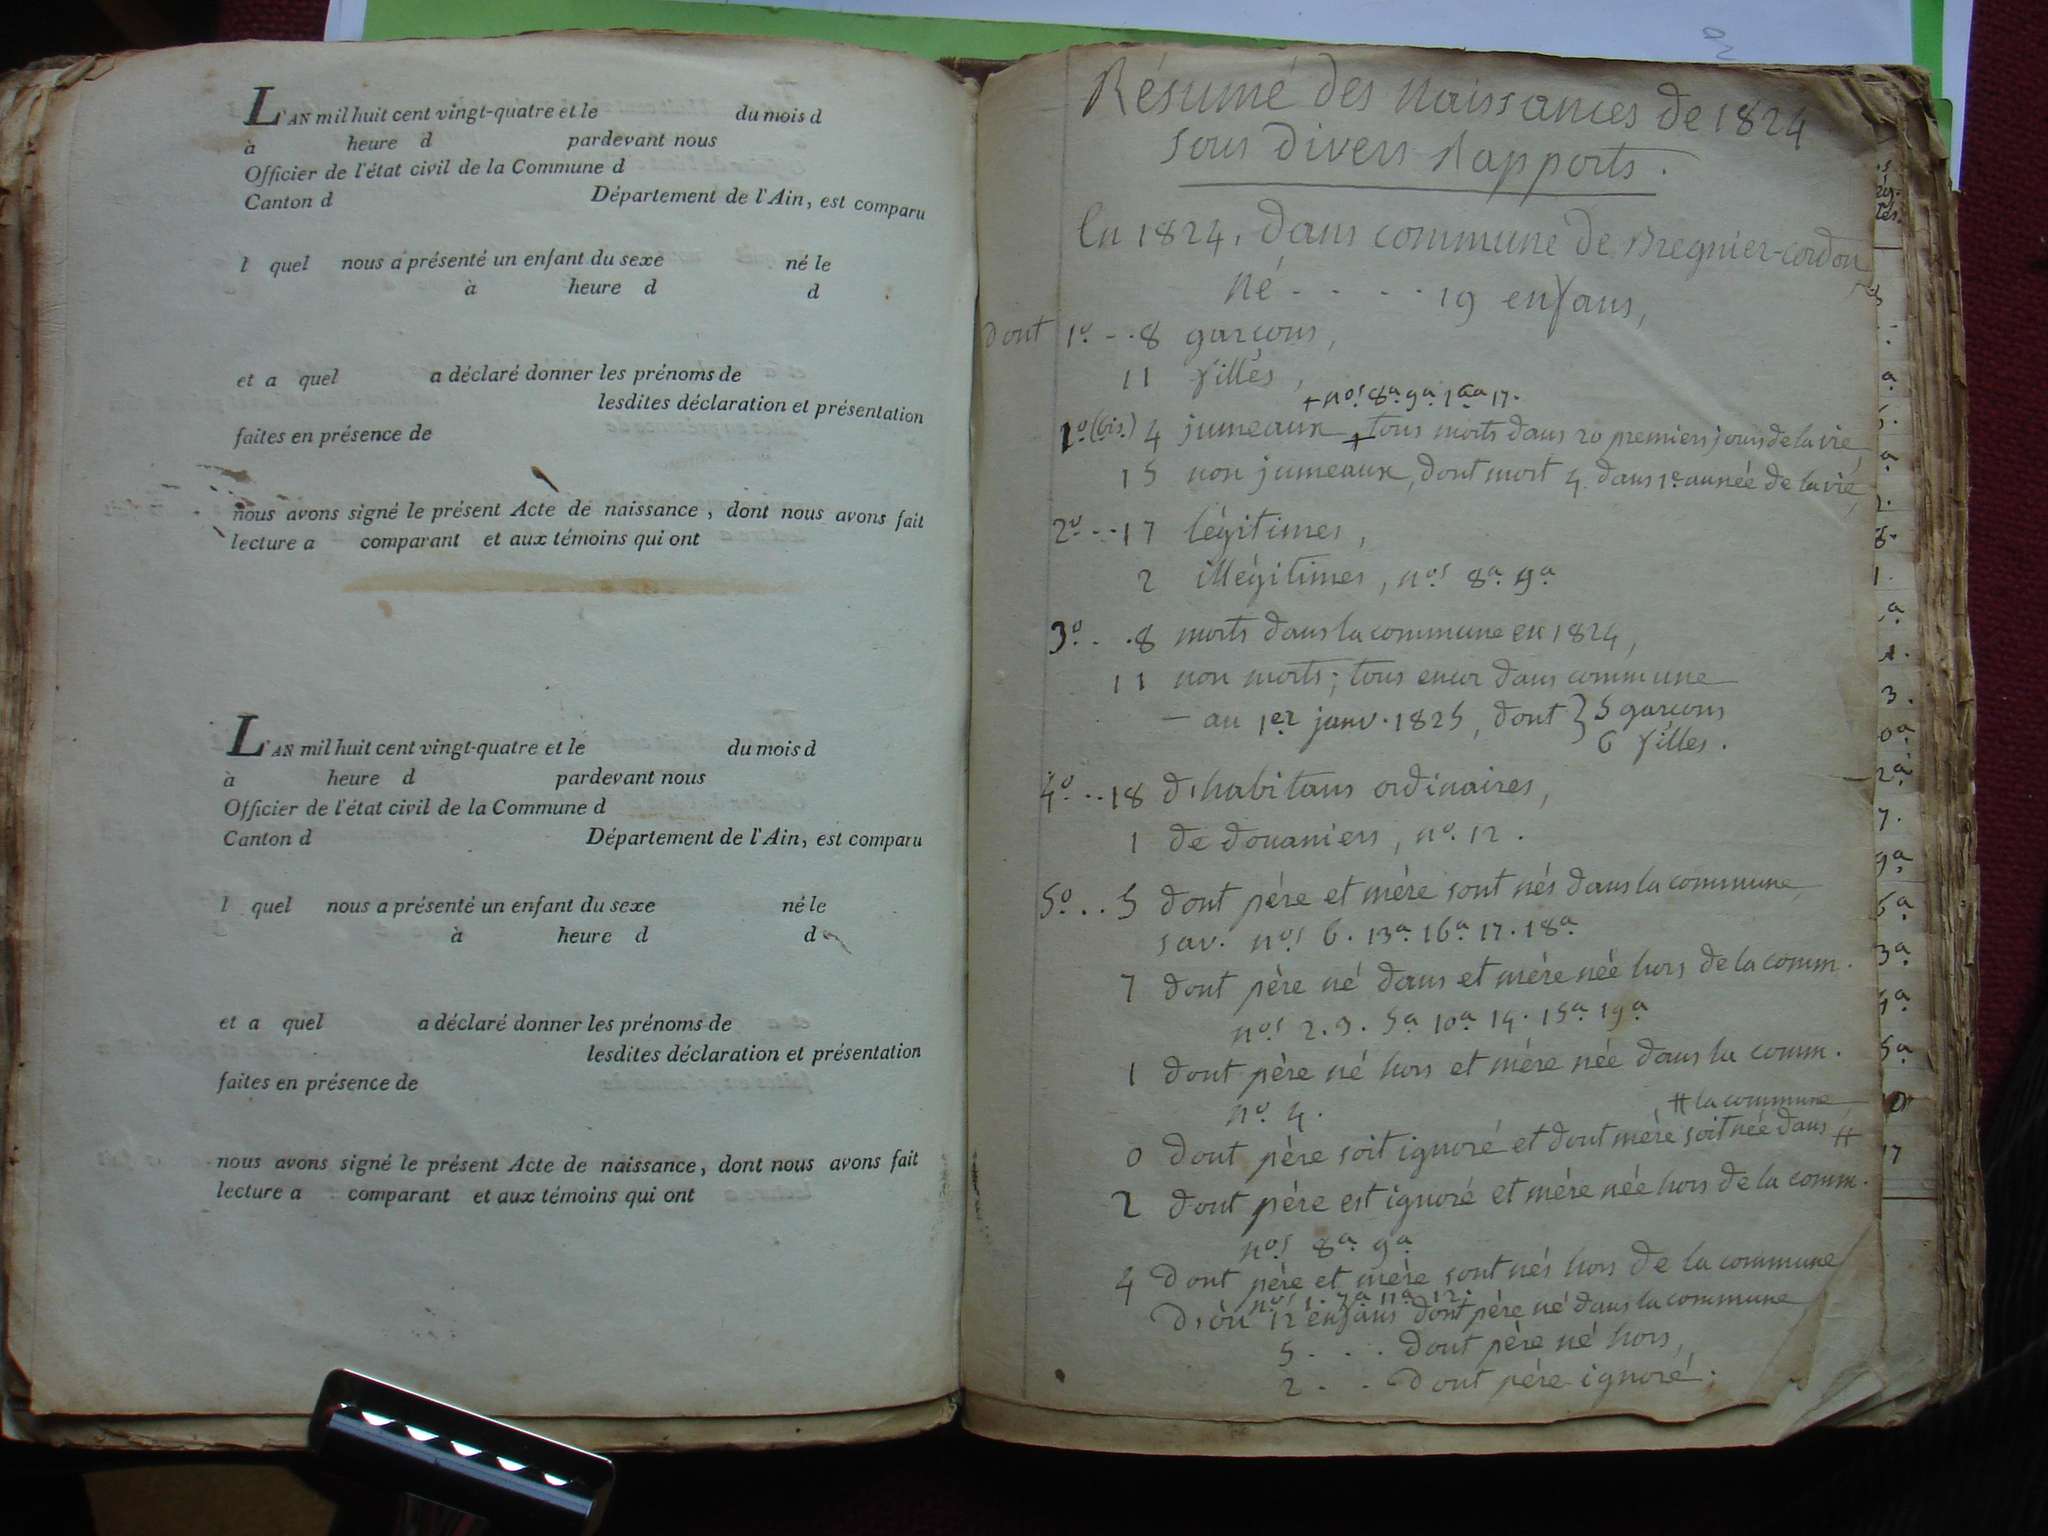 L'AN mil huit cent vingt-quatre et le du mois d
à heure d pardevant nous
Officier de l'état civil de la Commune d
Canton d Département de l'Ain, est comparu
l quel nous a présenté un enfant du sexe né le
à heure d d
et a quel a déclaré donner les prénoms de
lesdites déclaration et présentation
faites en présence de
nous avons signé le présent Acte de naissance, dont nous avons fait
lecture a comparant et aux témoins qui ont
L'AN mil huit cent vingt-quatre et le du mois d
à heure d pardevant nous
Officier de l'état civil de la Commune d
Canton d Département de l'Ain, est comparu
l quel nous a présenté un enfant du sexe né le
à heure d d
et a quel a déclaré donner les prénoms de
lesdites déclaration et présentation
faites en présence de
nous avons signé le présent Acte de naissance, dont nous avons fait
lecture a comparant et aux témoins qui ont
Résumé des naissances de 1824
sous divers rapports.
En 1824, dans commune de Bregnier-cordon
né . . . . 19 enfans,
dont 1º - . 8 garçons,
11 filles,
+ nos 8a 9a 16a 17.
1º (bis) 4 jumeaux + tous morts dans 20 premiers jours de la vie
15 non jumeaux, dont mort 4 dans 1e année de la vie,
2º - . 17 légitimes,
2 illégitimes, nos 8a 9a
3º . . 8 morts dans la commune en 1824,
11 non morts; tous encor dans commune
— au 1er janv. 1825, dont } 5 garçons
6 filles.
4º . . 18 d'habitans ordinaires,
1 de douaniers, nº 12.
5º . . 5 dont père et mère sont nés dans la commune,
sav. nos 6. 13a 16a 17. 18a
7 dont père né dans et mère née hors de la comm.
nos 2. 3. 5a 10a 14. 15a 19a
1 dont père né hors et mère née dans la comm.
nº 4.
# la commune
0 dont père soit ignoré et dont mère soit née dans #
2 dont père est ignoré et mère née hors de la comm.
nos 8a 9a
4 dont père et mère sont nés hors de la commune
nos 1. 7a 11a 12.
D'où 12 enfans dont père né dans la commune
5 . . . dont père né hors,
2 . . dont père ignoré.